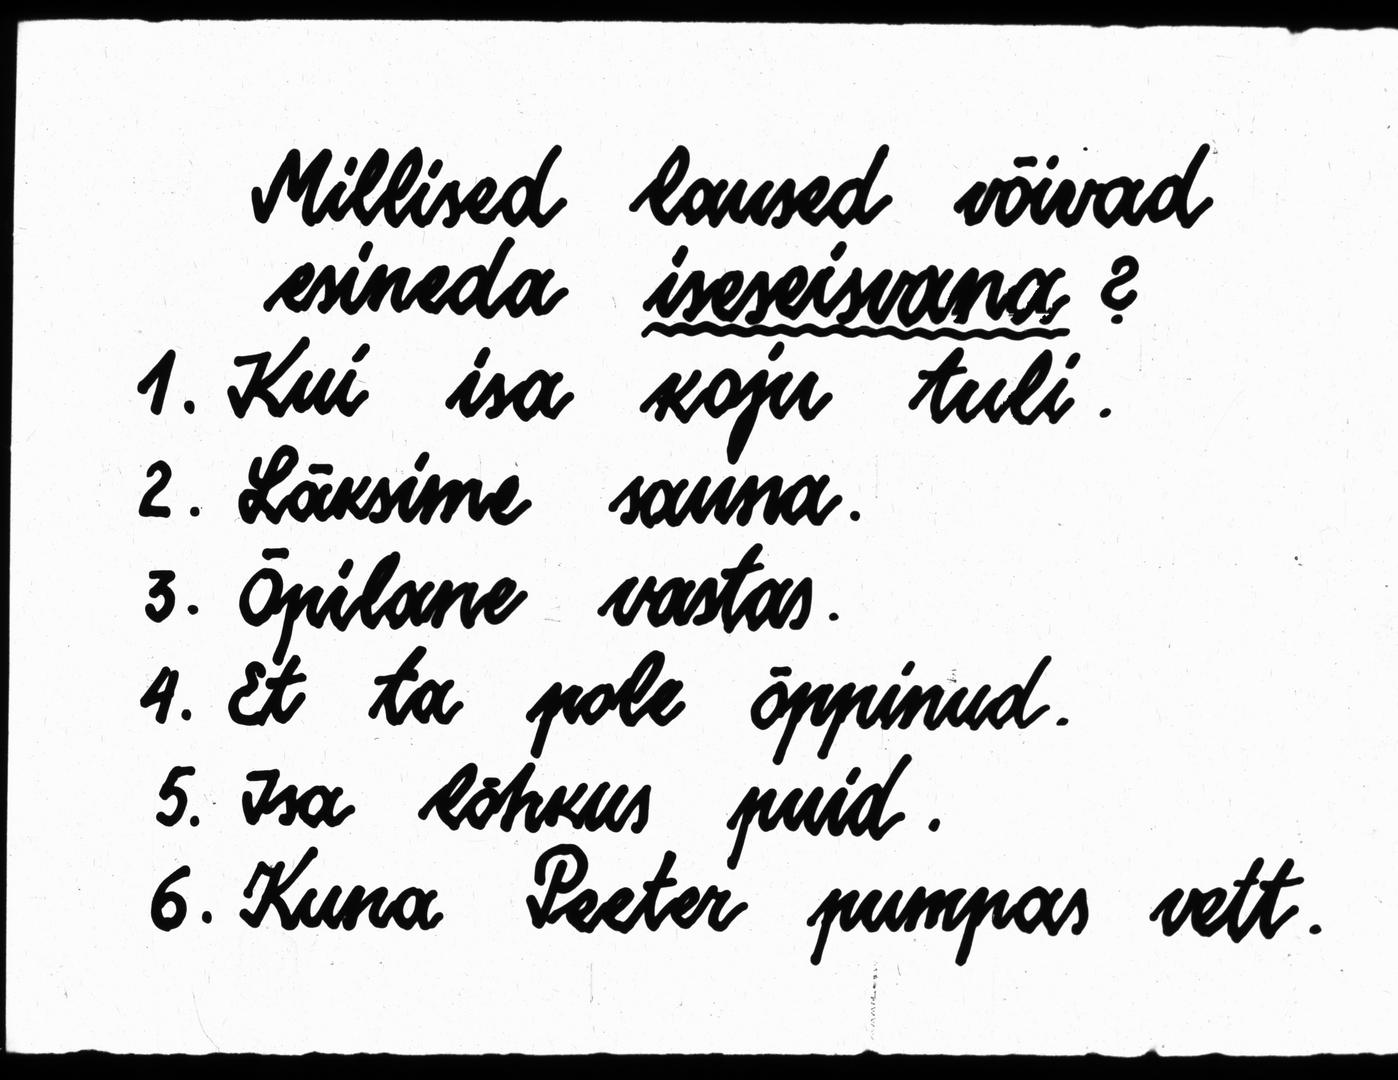 Millised laused võivad
esineda iseseisvana?
1. Kui isa koju tuli.
2. Läksime sauna.
3. Õpilane vastas.
4. Et ta pole õppinud.
5. Isa lõhkus puid.
6. Kuna Peeter pumpas vett.